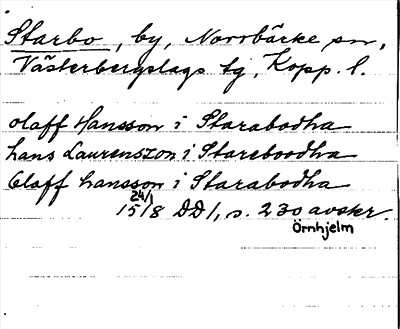 Starbo, by, Norrbärke sn,
Västerbergslags tg, Kopp. l.
olaff Hansson i Starabodha
hans Laurenszon i Stareboodha
Olaff hansson i Starabodha
24/1
1518 DD1, s. 230 avskr.
Örnhjelm